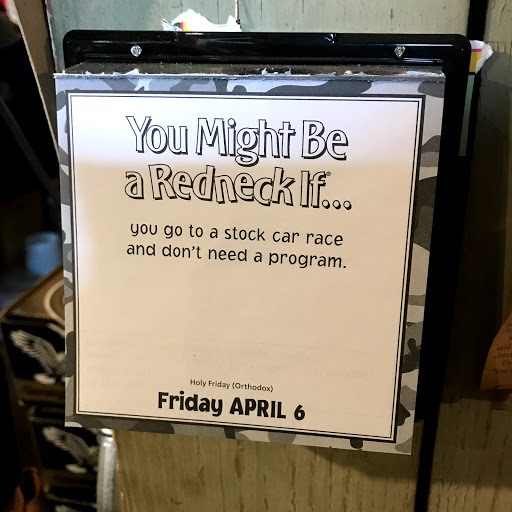 You Might Be
a Redneck If®...
you go to a stock car race
and don't need a program.
Holy Friday (Orthodox)
Friday APRIL 6